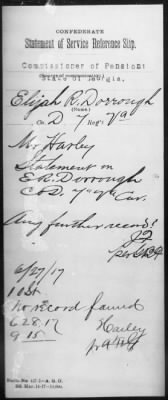 CONFEDERATE
Statement of Service Reference Slip.
Commissioner of Pensions
State of Georgia.
Elijah R. Dorrough
(Name.)
Co. D 7 Reg't Va
Mr Harley
Statement on
E. R. Dorrough
Co D. 7 Va Cav.
Any further record?
6/27/17
No record found
6 28 17
Harley
9 15